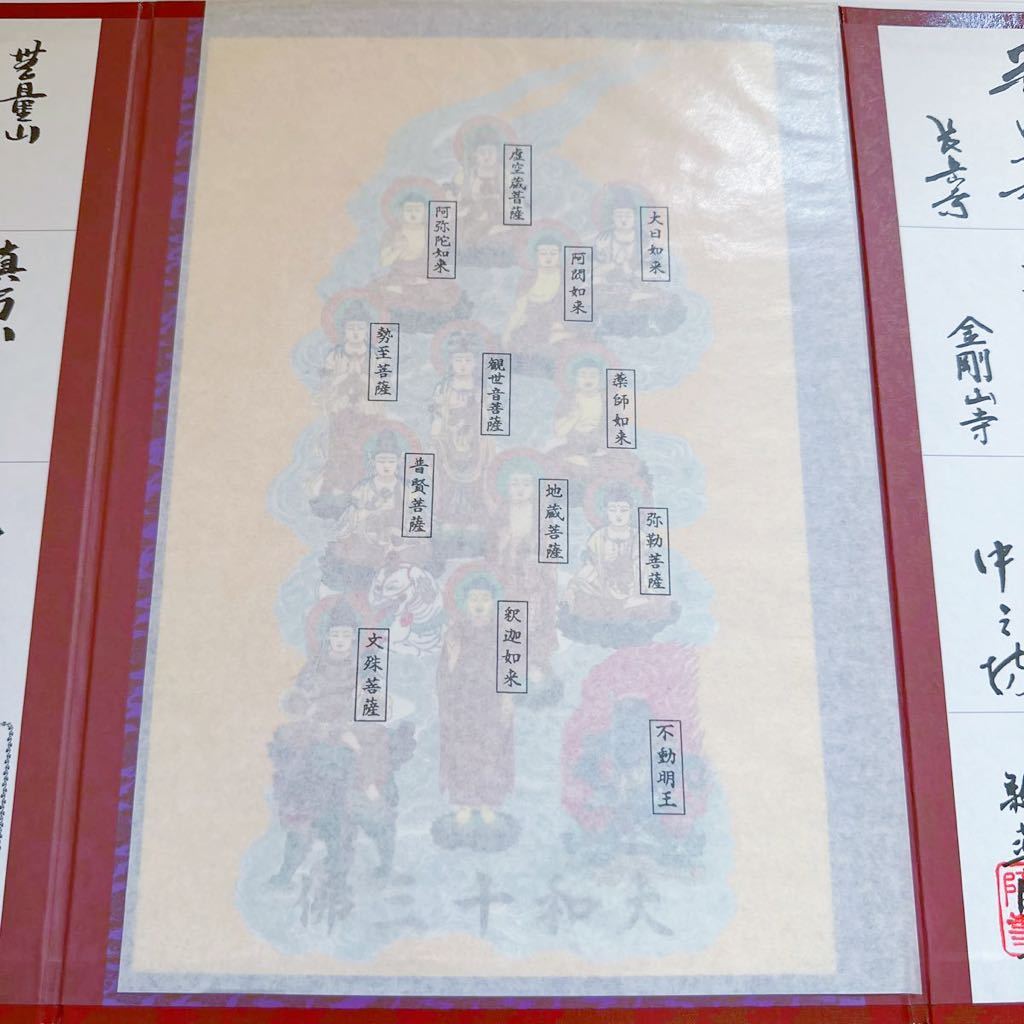 虚空蔵菩薩
大日如来
阿弥陀如来
阿閦如来
勢至菩薩
観世音菩薩
薬師如来
普賢菩薩
地蔵菩薩
弥勒菩薩
釈迦如来
文殊菩薩
不動明王
大和十三佛
長岳寺
金剛山寺
中之坊
無量山